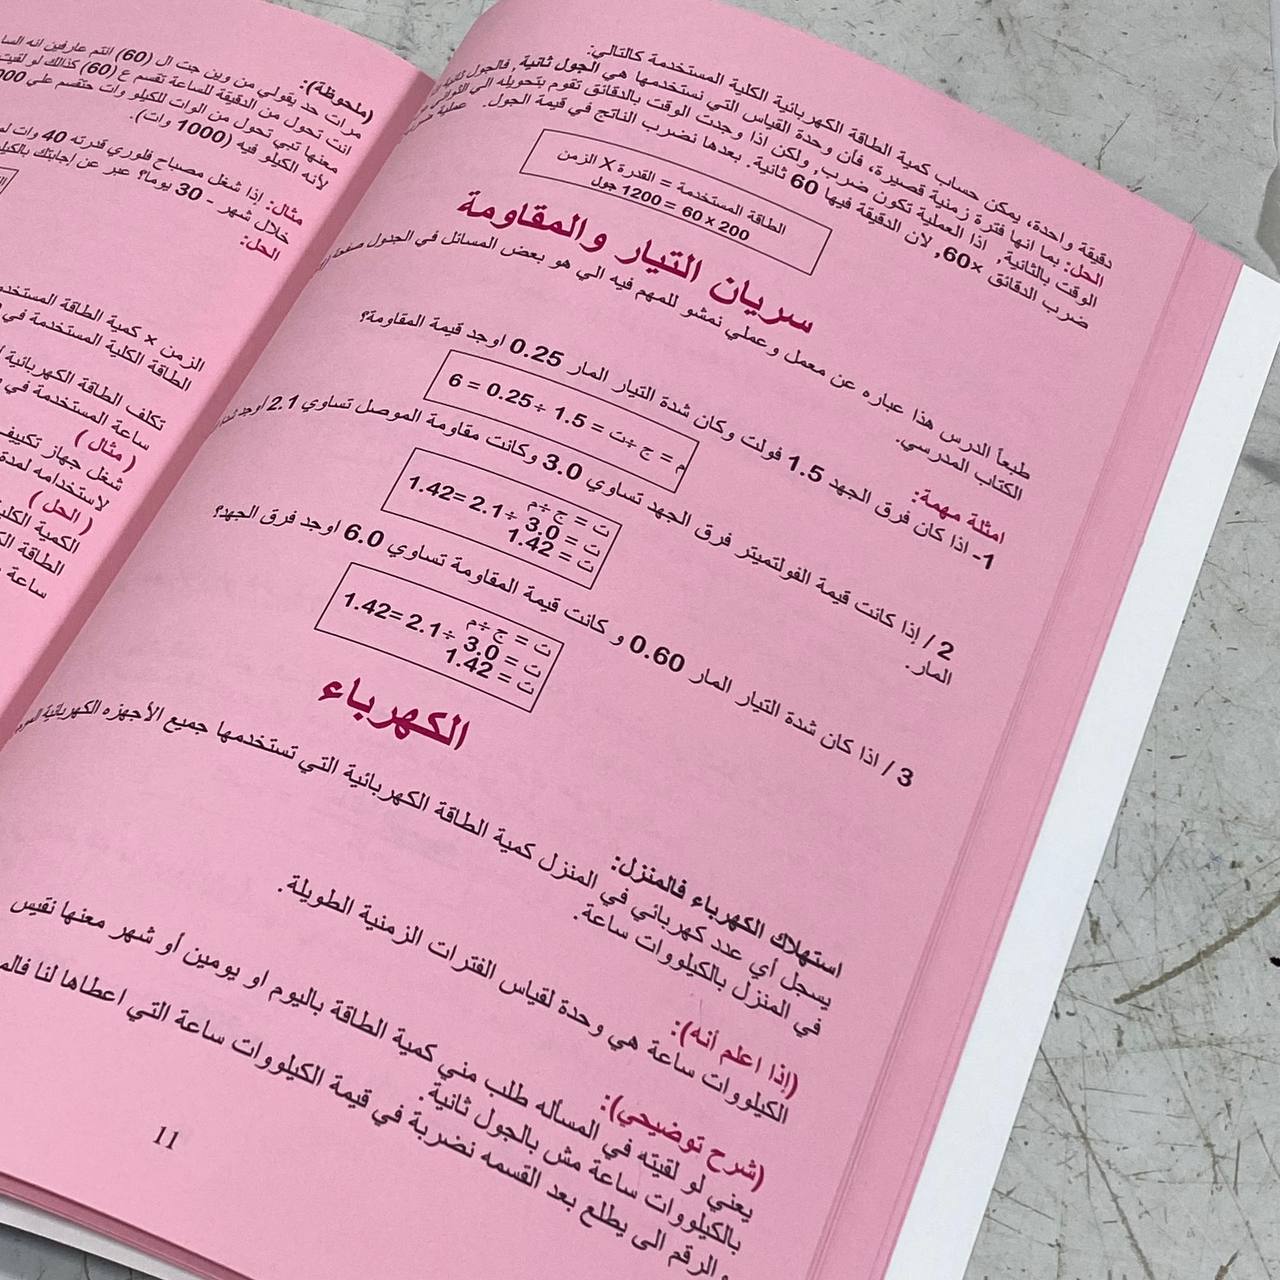 دقيقة واحدة، يمكن حساب كمية الطاقة الكهربائية الكلية المستخدمة كالتالي:
الحل: بما انها فترة زمنية قصيرة، فأن وحدة القياس التي نستخدمها هي الجول ثانية, فالجول ثانية
الوقت بالثانية, اذا العملية تكون ضرب, ولكن اذا وجدت الوقت بالدقائق تقوم بتحويله الي الثواني
ضرب الدقائق ×60, لأن الدقيقة فيها 60 ثانية. بعدها نضرب الناتج في قيمة الجول. عملية
الطاقة المستخدمة = القدرة X الزمن
200 × 60 = 1200 جول
سريان التيار والمقاومة
طبعاً الدرس هذا عباره عن معمل وعملي نمشو للمهم فيه الي هو بعض المسائل في الجدول صفحة
الكتاب المدرسي.
امثلة مهمة:
1- اذا كان فرق الجهد 1.5 فولت وكان شدة التيار المار 0.25 اوجد قيمة المقاومة؟
م = ج ÷ت = 1.5 ÷ 0.25 = 6
2 / إذا كانت قيمة الفولتميتر فرق الجهد تساوي 3.0 وكانت مقاومة الموصل تساوي 2.1 اوجد
المار.
ت = ج ÷م
ت = 3.0 ÷ 2.1 =1.42
ت = 1.42
3 / اذا كان شدة التيار المار 0.60 و كانت قيمة المقاومة تساوي 6.0 اوجد فرق الجهد؟
ت = ج ÷م
ت = 3.0 ÷ 2.1 =1.42
ت = 1.42
الكهرباء
استهلاك الكهرباء فالمنزل:
يسجل أي عدد كهربائي في المنزل كمية الطاقة الكهربائية التي تستخدمها جميع الأجهزه الكهربائية
في المنزل بالكيلووات ساعة.
(إذا اعلم أنه):
الكيلووات ساعة هي وحدة لقياس الفترات الزمنية الطويلة.
(شرح توضيحي):
يعني لو لقيته في المسأله طلب مني كمية الطاقة باليوم او يومين أو شهر معنها نقيس
بالكيلووات ساعة مش بالجول ثانية.
و الرقم الى يطلع بعد القسمه نضربة في قيمة الكيلووات ساعة التي اعطاها لنا
11
(ملحوظة):
مرات حد يقولي من وين جت ال (60) انتم عارفين انه
انت تحول من الدقيقة للساعة تقسم ع (60) كذالك لو لقيت
معنها تبي تحول من الوات للكيلو وات حتقسم علي
لأنه الكيلو فيه (1000 وات).
مثال: إذا شغل مصباح فلوري قدرته 40 وات
خلال شهر - 30 يوما؟ عبر عن إجابتك
الحل:
الزمن × كمية الطاقة
الطاقة الكلية المستخدمة في
تكلف الطاقة الكهربائية
ساعة المستخدمة في
( مثال )
شغل جهاز تكييف
لاستخدامه لمدة
( الحل )
الكمية الكلية
الطاقة
ساعة